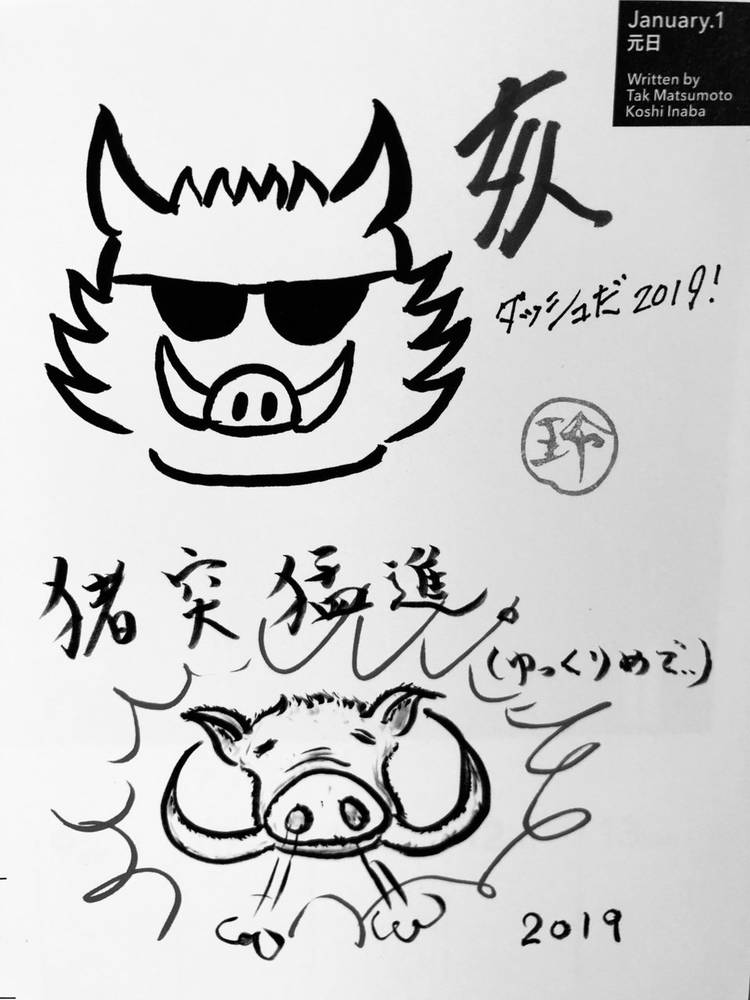 January.1
元日
Written by
Tak Matsumoto
Koshi Inaba
亥
ダッシュだ 2019!
玲
猪突猛進。
(ゆっくりめで..)
2019